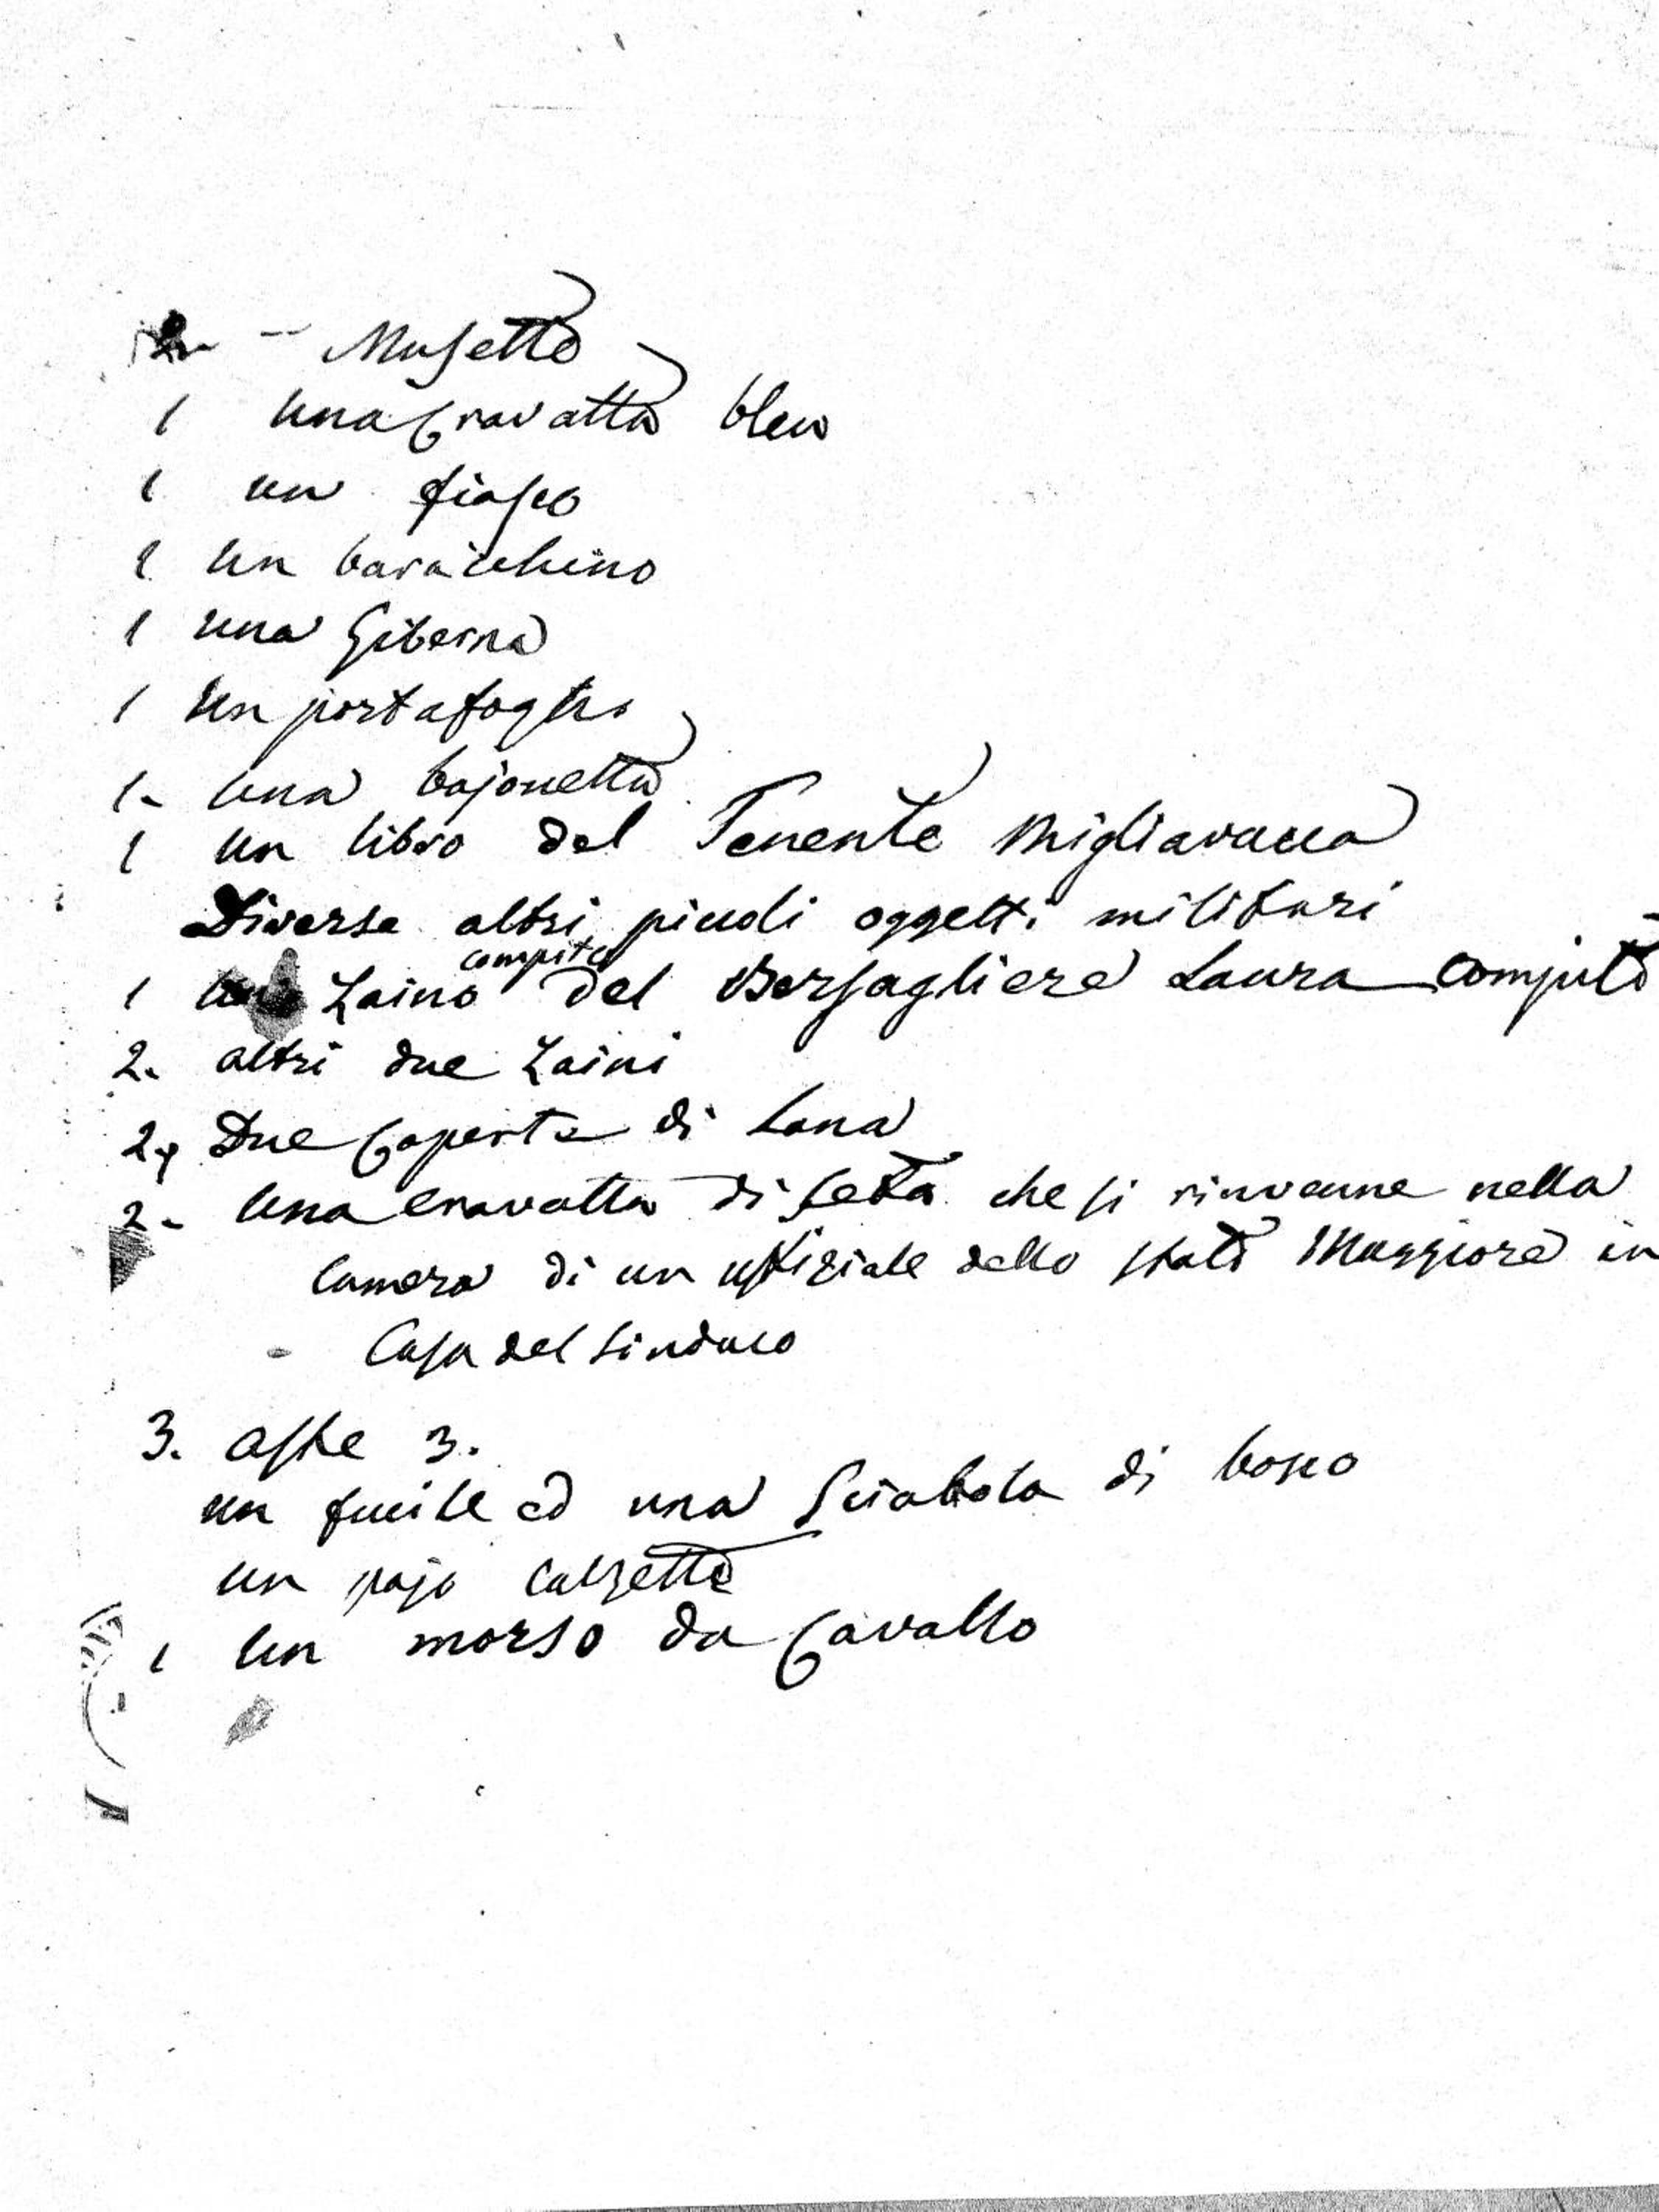 2 - Musette
1 una Cravatta bleu
1 un fiasco
1 un baraichino
1 una Giberna
1 un portafoglio
1- una bajonetta
1 un libro del Tenente Migliavacca
Diverse altri piccoli oggetti militari
compito
1 Zaino del Bersagliere Laura compito
2. altri due Zaini
2. Due Coperte di Lana
2- Una cravatta di seta che si rinvenne nella
Camera di un uffiziale dello stato Maggiore in
Casa del Sindaco
3. aste 3.
un fucile ed una Sciabola di bosco
un pajo Calzette
1 Un morso da Cavallo